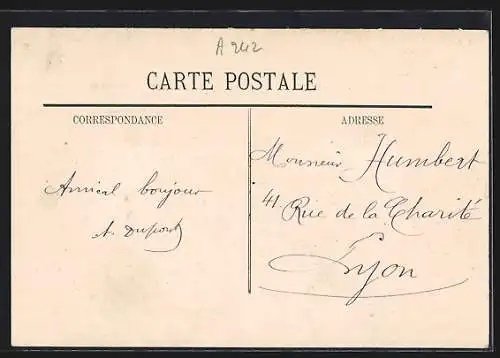 A 242
CARTE POSTALE
CORRESPONDANCE
Amical bonjour
A. Dupont
ADRESSE
Monsieur Humbert
41 Rue de la Charité
Lyon